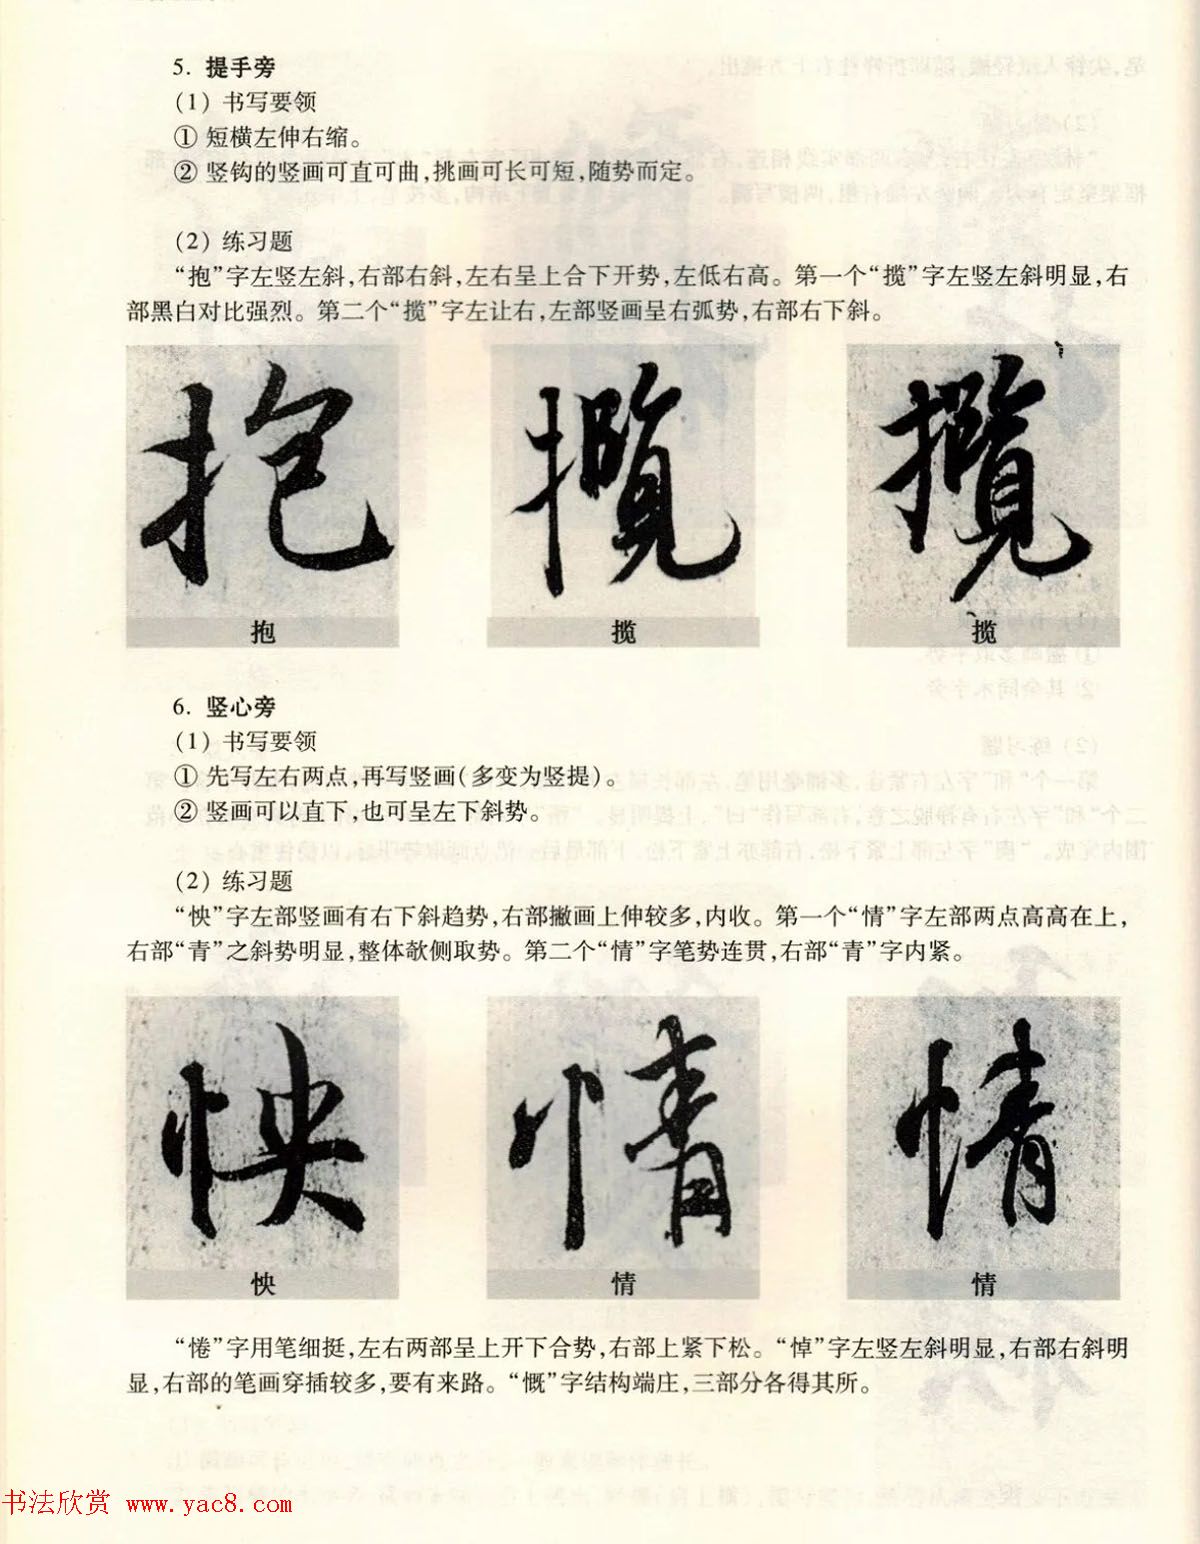 5. 提手旁
(1) 书写要领
① 短横左伸右缩。
② 竖钩的竖画可直可曲,挑画可长可短,随势而定。
(2) 练习题
“抱”字左竖左斜,右部右斜,左右呈上合下开势,左低右高。第一个“揽”字左竖左斜明显,右
部黑白对比强烈。第二个“揽”字左让右,左部竖画呈右弧势,右部右下斜。
抱 揽 揽
6. 竖心旁
(1) 书写要领
① 先写左右两点,再写竖画(多变为竖提)。
② 竖画可以直下,也可呈左下斜势。
(2) 练习题
“怏”字左部竖画有右下斜趋势,右部撇画上伸较多,内收。第一个“情”字左部两点高高在上,
右部“青”之斜势明显,整体欹侧取势。第二个“情”字笔势连贯,右部“青”字内紧。
怏 情 情
“惓”字用笔细挺,左右两部呈上开下合势,右部上紧下松。“悼”字左竖左斜明显,右部右斜明
显,右部的笔画穿插较多,要有来路。“慨”字结构端庄,三部分各得其所。
书法欣赏 www.yac8.com